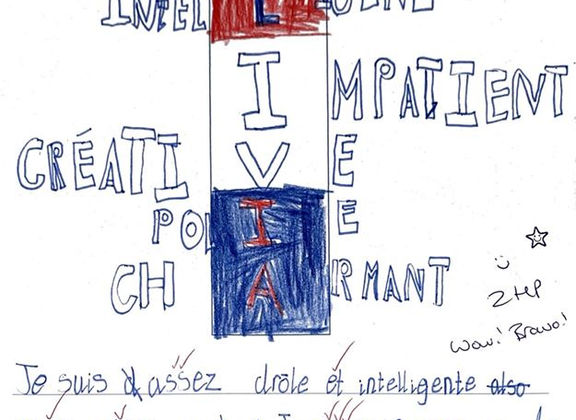 IMPATIENT
CRÉATIVE
POLIE
CHARMANT
2HP
Wow! Bravo!
Je suis assez drôle et intelligente also